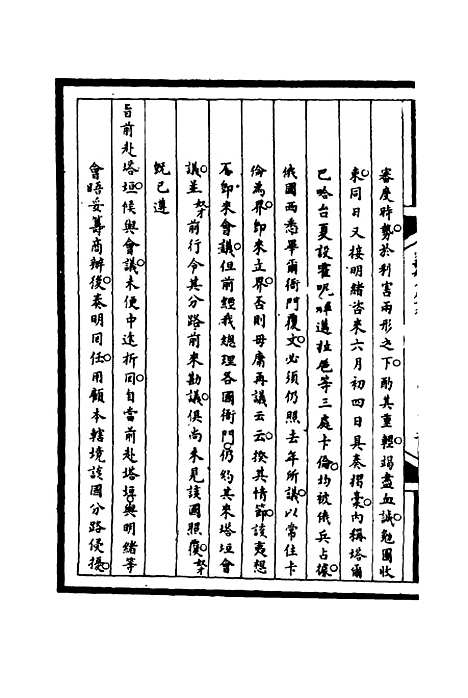 審度時勢於利害兩形之下酌其重輕竭盡血誠勉圖收
束同日又接明緒咨來六月初四日具奏摺稾內稱塔爾
巴哈台夏設霍呢邁拉扈等三處卡倫均被俄兵占據
俄國西悉畢爾衙門覆文必須仍照去年所議以常住卡
倫為界即來立界否則毋庸再議云云揆其情節該夷想
不即來會議但前經我總理各國衙門仍約其來塔垣會
議並奴才前行令其分路前來勘議俱尚未見該國照覆奴才
旣已遵
旨前赴塔垣候與會議未便中途折回自當前赴塔垣與明緒等
會晤妥籌商辦後奏明同任用顧本轄境該國分路侵擾